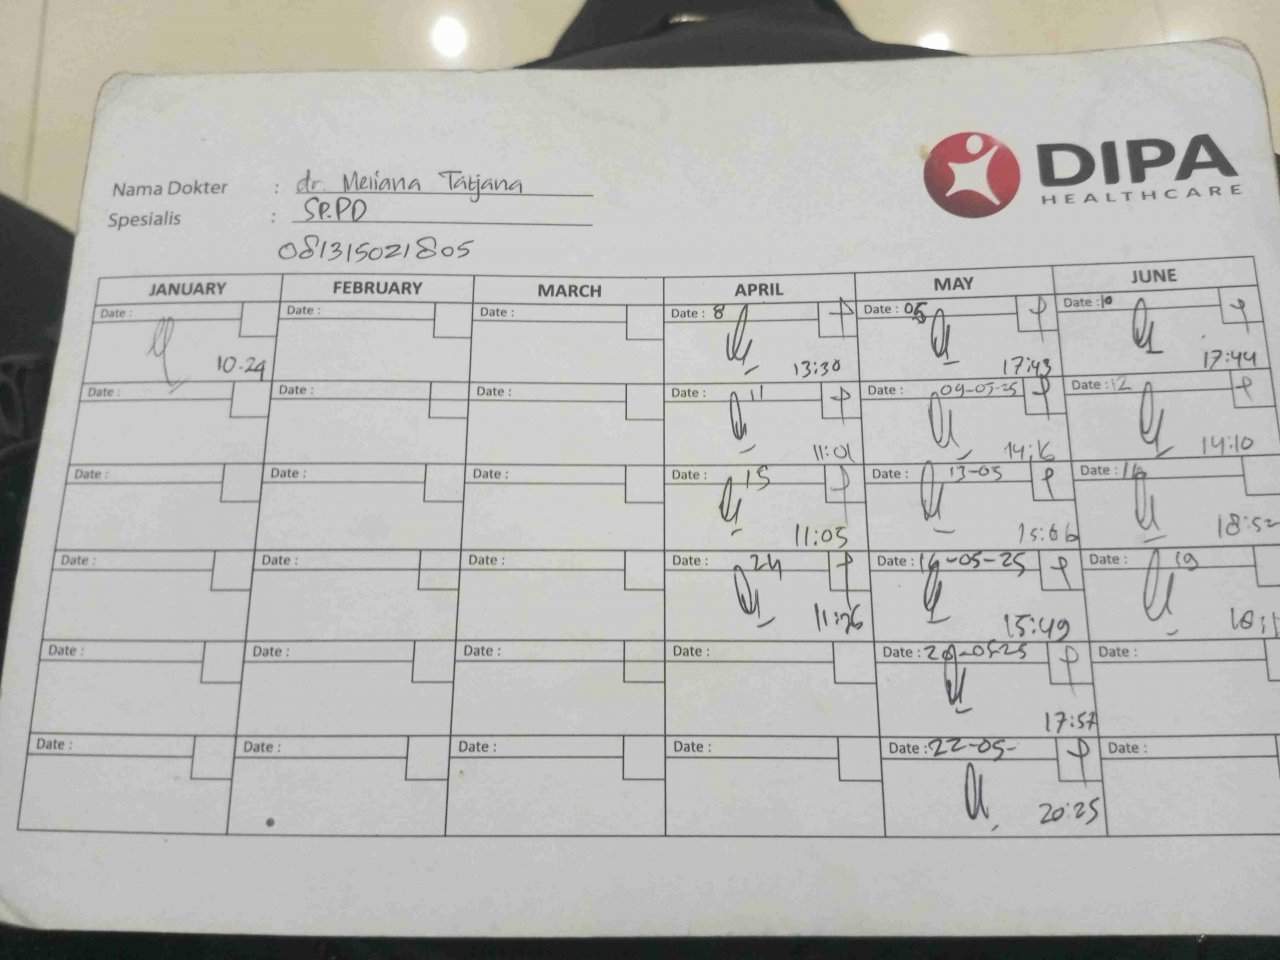 DIPA
HEALTHCARE
Nama Dokter : dr. Meliana Tatjana
Spesialis : SP.PD
081315021805
JANUARY FEBRUARY MARCH APRIL MAY JUNE
Date : Date : Date : Date : 8 Date : 05 Date : 10
10.24 13:30 17:43 17:44
Date : Date : Date : Date : 11 Date : 09-05-25 Date : 12
11:01 14:16 14:10
Date : Date : Date : Date : 15 Date : 13-05 Date :
11:05 15:06 18:52
Date : Date : Date : Date : 24 Date : 16-05-25 Date : 19
11:26 15:49
Date : Date : Date : Date : Date : 20-05-25 Date :
17:57
Date : Date : Date : Date : Date : 22-05- Date :
20:25